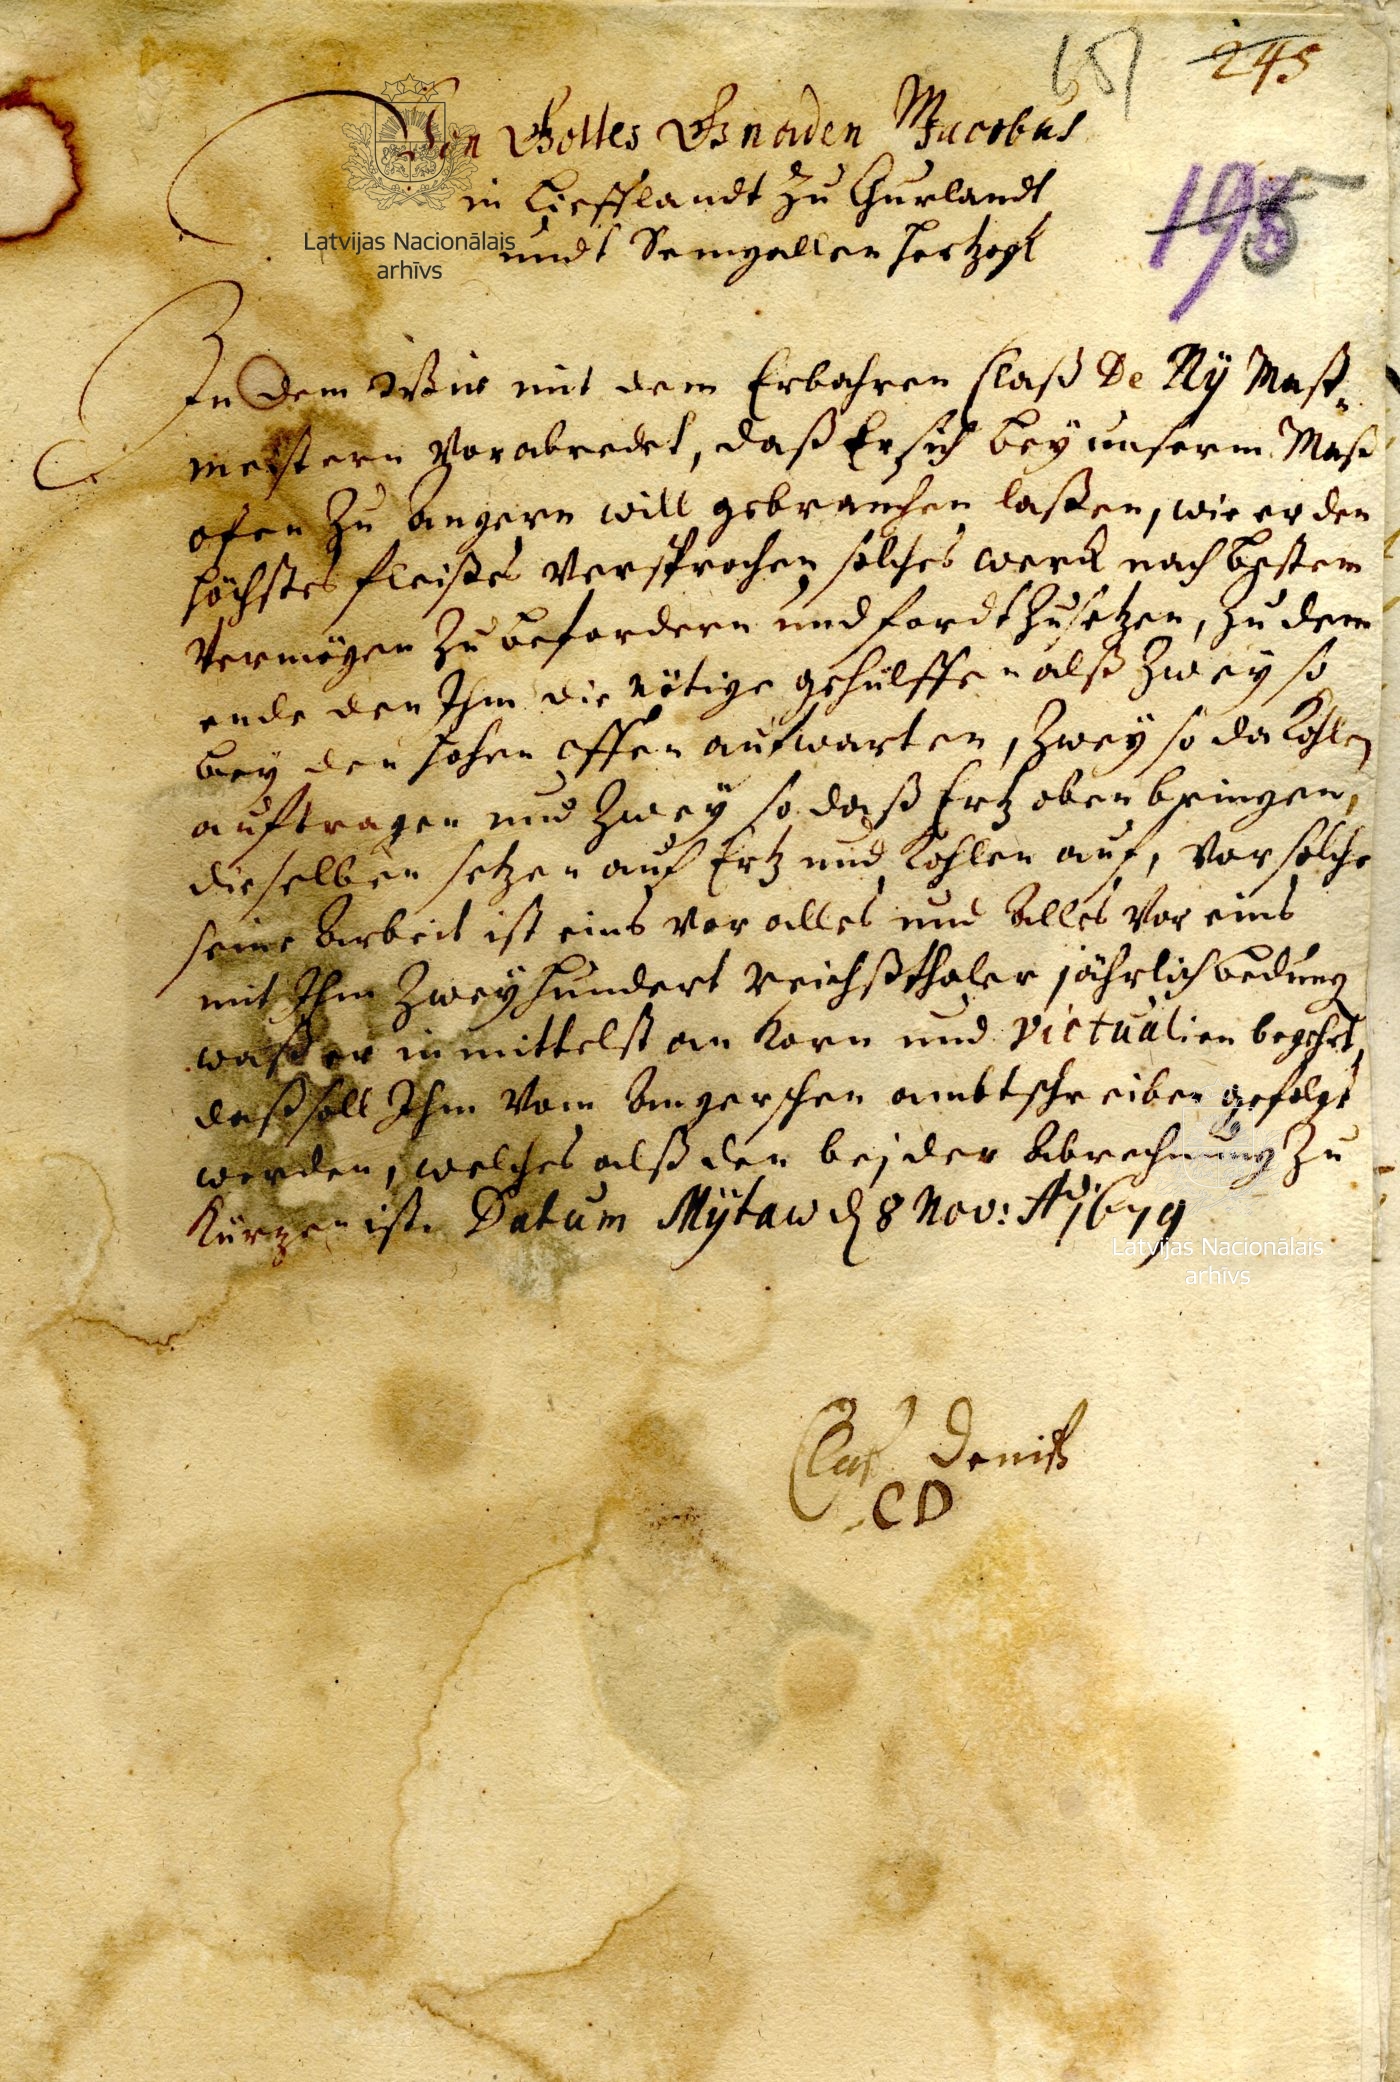 657 245
Von Gottes Gnaden Jacobus
in Liefflandt Zu Churlandt
195
undt Semgallen Hertzogk
Latvijas Nacionālais
arhīvs
In dem Wir mit dem Erbahren Claß De Ny Maß-
meistern Vorabredet, daß Er sich bey unserm Maß
ofen Zu Angern will gebrauchen laßen, wie er den
höchstes fleißes Versprochen solches werck nach bestem
Vermögen Zu befordern und fordt Zusetzen, Zu dem
ende den Ihm die nötige gehülffen alß Zwey so
bey den hohen offen aufwarten, Zwey so da Kohlen
auftragen und Zwey so daß Ertz oben bringen,
dieselben setzen auch Ertz und Kohlen auf, Vor solche
seine Arbeit ist eins vor alles und Alles Vor eins
mit Ihm Zweyhundert reichßthaler jährlich bedung
waß er inmittelst an Korn und Victualien begehrt,
daß soll Ihm Vom Angerschen ambtschreiber gefolgt
werden, welches alß den bej der Abrechnung Zu
Kürzen ist. Datum Mÿtaw d 8 Nov: Ao 1679
Latvijas Nacionālais
arhīvs
Claß Deniß
CD